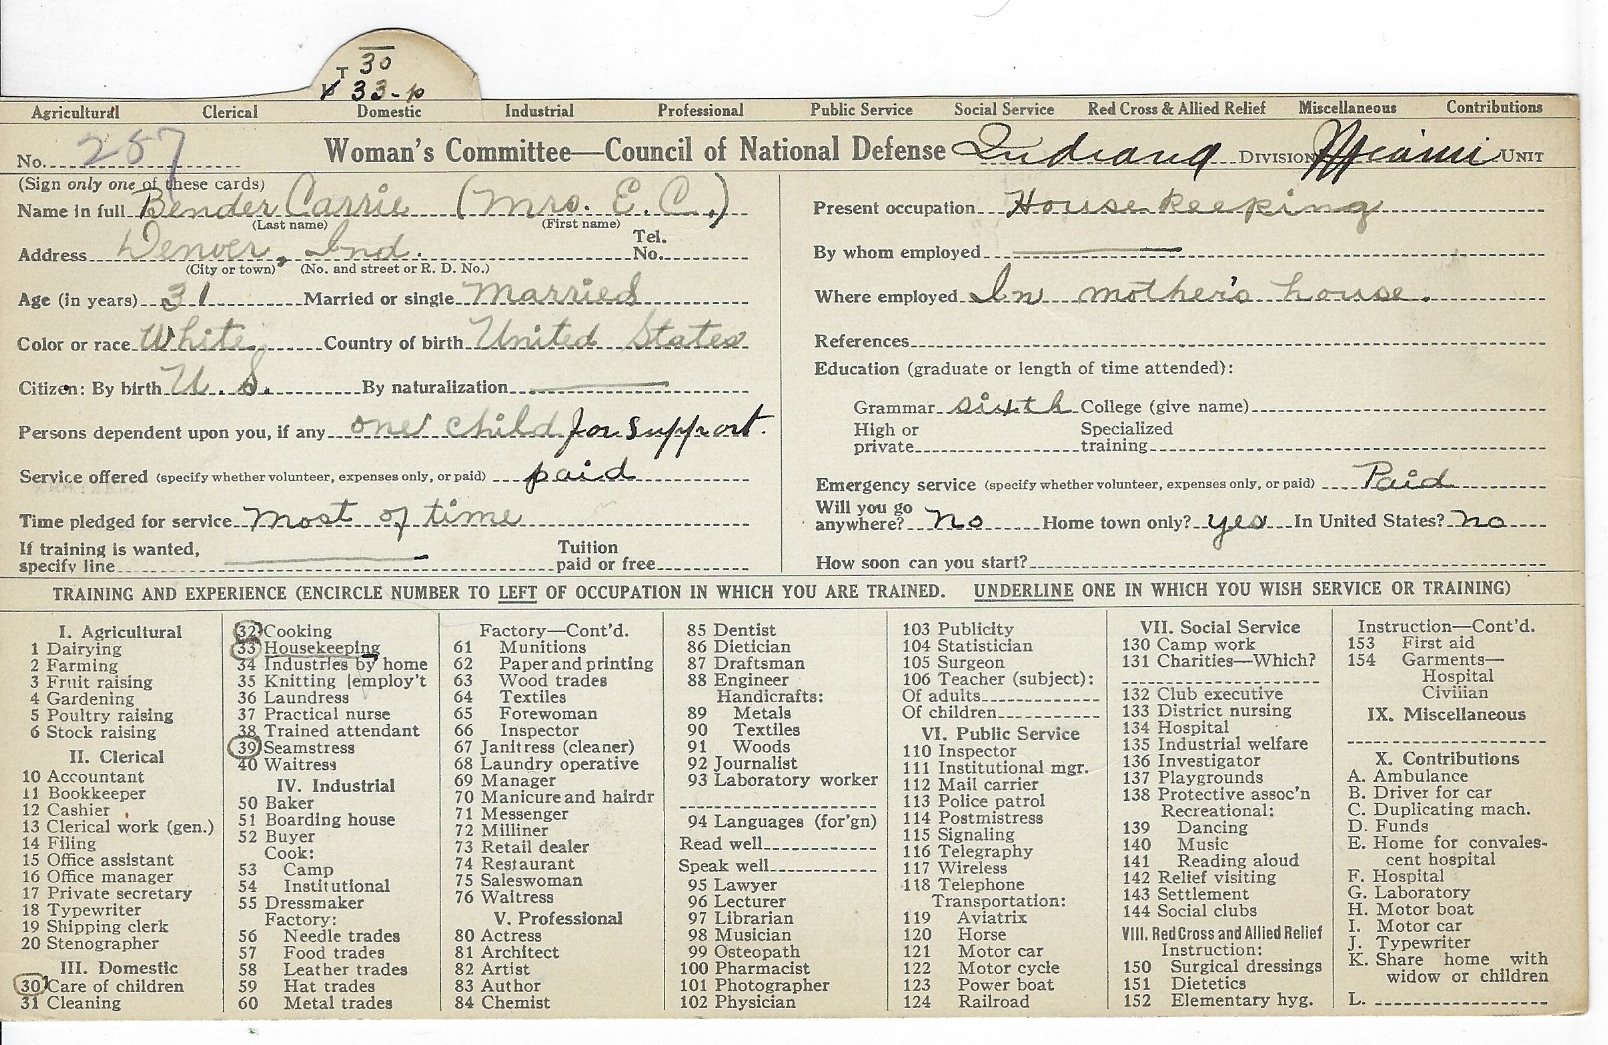 T 30
33-p
Agricultural Clerical Domestic Industrial Professional Public Service Social Service Red Cross & Allied Relief Miscellaneous Contributions
No. 257 Woman's Committee—Council of National Defense Indiana DIVISION Miami UNIT
(Sign only one of these cards)
Name in full Bender Carrie (Mrs. E. C.)
(Last name) (First name)
Address Denver, Ind. Tel. No.
(City or town) (No. and street or R. D. No.)
Age (in years) 31 Married or single Married
Color or race White Country of birth United States
Citizen: By birth U. S. By naturalization
Persons dependent upon you, if any one child for support.
Service offered (specify whether volunteer, expenses only, or paid) paid
Time pledged for service most of time
If training is wanted, specify line Tuition paid or free
Present occupation Housekeeping
By whom employed
Where employed In mother's house.
References
Education (graduate or length of time attended):
Grammar sixth College (give name)
High or private Specialized training
Emergency service (specify whether volunteer, expenses only, or paid) Paid
Will you go anywhere? no Home town only? yes In United States? no
How soon can you start?
TRAINING AND EXPERIENCE (ENCIRCLE NUMBER TO LEFT OF OCCUPATION IN WHICH YOU ARE TRAINED. UNDERLINE ONE IN WHICH YOU WISH SERVICE OR TRAINING)
I. Agricultural
1 Dairying
2 Farming
3 Fruit raising
4 Gardening
5 Poultry raising
6 Stock raising
II. Clerical
10 Accountant
11 Bookkeeper
12 Cashier
13 Clerical work (gen.)
14 Filing
15 Office assistant
16 Office manager
17 Private secretary
18 Typewriter
19 Shipping clerk
20 Stenographer
III. Domestic
30 Care of children
31 Cleaning
32 Cooking
33 Housekeeping
34 Industries by home
35 Knitting [employ't
36 Laundress
37 Practical nurse
38 Trained attendant
39 Seamstress
40 Waitress
IV. Industrial
50 Baker
51 Boarding house
52 Buyer
Cook:
53 Camp
54 Institutional
55 Dressmaker
Factory:
56 Needle trades
57 Food trades
58 Leather trades
59 Hat trades
60 Metal trades
Factory—Cont'd.
61 Munitions
62 Paper and printing
63 Wood trades
64 Textiles
65 Forewoman
66 Inspector
67 Janitress (cleaner)
68 Laundry operative
69 Manager
70 Manicure and hairdr
71 Messenger
72 Milliner
73 Retail dealer
74 Restaurant
75 Saleswoman
76 Waitress
V. Professional
80 Actress
81 Architect
82 Artist
83 Author
84 Chemist
85 Dentist
86 Dietician
87 Draftsman
88 Engineer
Handicrafts:
89 Metals
90 Textiles
91 Woods
92 Journalist
93 Laboratory worker
94 Languages (for'gn)
Read well
Speak well
95 Lawyer
96 Lecturer
97 Librarian
98 Musician
99 Osteopath
100 Pharmacist
101 Photographer
102 Physician
103 Publicity
104 Statistician
105 Surgeon
106 Teacher (subject):
Of adults
Of children
VI. Public Service
110 Inspector
111 Institutional mgr.
112 Mail carrier
113 Police patrol
114 Postmistress
115 Signaling
116 Telegraphy
117 Wireless
118 Telephone
Transportation:
119 Aviatrix
120 Horse
121 Motor car
122 Motor cycle
123 Power boat
124 Railroad
VII. Social Service
130 Camp work
131 Charities—Which?
132 Club executive
133 District nursing
134 Hospital
135 Industrial welfare
136 Investigator
137 Playgrounds
138 Protective assoc'n
Recreational:
139 Dancing
140 Music
141 Reading aloud
142 Relief visiting
143 Settlement
144 Social clubs
VIII. Red Cross and Allied Relief
Instruction:
150 Surgical dressings
151 Dietetics
152 Elementary hyg.
Instruction—Cont'd.
153 First aid
154 Garments—
Hospital
Civilian
IX. Miscellaneous
X. Contributions
A. Ambulance
B. Driver for car
C. Duplicating mach.
D. Funds
E. Home for convales-
cent hospital
F. Hospital
G. Laboratory
H. Motor boat
I. Motor car
J. Typewriter
K. Share home with
widow or children
L.